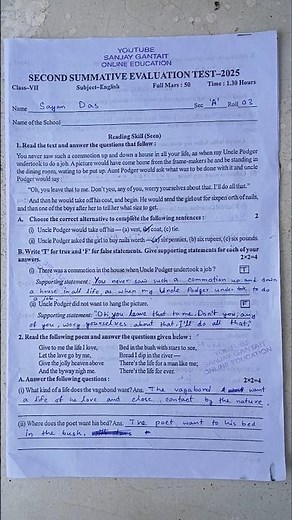 YOUTUBE
SANJAY GANTAIT
ONLINE EDUCATION
SECOND SUMMATIVE EVALUATION TEST–2025
Class–VII Subject–English Full Mars : 50 Time : 1.30 Hours
Name Sayan Das Sec 'A' Roll 03
Name of the School
Reading Skill (Seen)
1. Read the text and answer the questions that follow :
You never saw such a commotion up and down a house in all your life, as when my Uncle Podger
undertook to do a job. A picture would have come home from the frame-makers and be standing in
the dining room, wating to be put up. Aunt Podger would ask what was to be done with it and uncle
Podger would say :
"Oh, you leave that to me. Don't you, any of you, worry yourselves about that. I'll do all that."
And then he would take off his coat, and begin. He would send the girl out for sixpen'orth of nails,
and then one of the boys after her to tell her what size to get.
A. Choose the correct alternative to complete the following sentences : 2
(i) Uncle Podger would take off his — (a) vest, (b) coat, (c) tie.
(ii) Uncle Podger asked the girl to buy nails worth — (a) sixpennies, (b) six rupees, (c) six pounds.
B. Write 'T' for true and 'F' for false statements. Give supporting statements for each of your
answers. 2×2=4
(i) There was a commotion in the house when Uncle Podger undertook a job ? T
Supporting statement: You never saw such a commotion up and down
a house in all life, as when my Uncle Podger under took to do
a job.
(ii) Uncle Podger did not want to hang the picture. F
Supporting statement: "Oh, you leave that to me. Don't you, any
of you, worry yourselves about that, I'll do all that."
2. Read the following poem and answer the questions given below :
Give to me the life I love, Bed in the bush with stars to see,
Let the lave go by me, Bread I dip in the river —
Give the jolly heaven above There's the life for a man like me;
And the byway nigh me. There's the life for ever.
A. Answer the following questions : 2×2=4
(i) What kind of a life does the vagabond want? Ans: The vagabond want
a life of he love and close contact by the nature
(ii) Where does the poet want his bed? Ans: The poet want to his bed
in the bush,
YOUTUBE
SANJAY GANTAIT
ONLINE EDUCATION